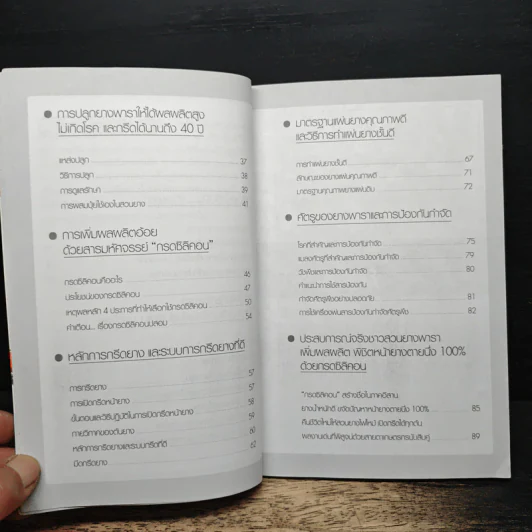 การปลูกยางพาราให้ได้ผลผลิตสูง
ไม่เกิดโรค และกรีดได้นานถึง 40 ปี
แหล่งปลูก 37
วิธีการปลูก 38
การดูแลรักษา 39
การผสมปุ๋ยใช้เองในสวนยาง 41
การเพิ่มผลผลิตอ้อย
ด้วยสารมหัศจรรย์ "กรดซิลิคอน"
กรดซิลิคอนคืออะไร 46
ประโยชน์ของกรดซิลิคอน 47
เหตุผลหลัก 4 ประการที่ทำให้เลือกใช้กรดซิลิคอน 50
คำเตือน... เรื่องกรดซิลิคอนปลอม 54
หลักการกรีดยาง และระบบการกรีดยางที่ดี
การกรีดยาง 57
การเปิดกรีดหน้ายาง 57
ขั้นตอนและวิธีปฏิบัติในการเปิดกรีดหน้ายาง 58
กายวิภาคของต้นยาง 59
หลักการกรีดยางและระบบกรีดที่ดี 60
มีดกรีดยาง 62
มาตรฐานแผ่นยางคุณภาพดี
และวิธีการทำแผ่นยางชั้นดี
การทำแผ่นยางชั้นดี 67
ลักษณะของยางแผ่นคุณภาพดี 71
มาตรฐานคุณภาพยางแผ่นดิบ 72
ศัตรูของยางพาราและการป้องกันกำจัด
โรคที่สำคัญและการป้องกันกำจัด 75
แมลงศัตรูที่สำคัญและการป้องกันกำจัด 79
วัชพืชและการป้องกันกำจัด 80
คำแนะนำการใช้สารป้องกัน
กำจัดศัตรูพืชอย่างปลอดภัย 81
การใช้เครื่องพ่นสารป้องกันกำจัดศัตรูพืช 82
ประสบการณ์จริงชาวสวนยางพารา
เพิ่มผลผลิต พิชิตหน้ายางตายนึ่ง 100%
ด้วยกรดซิลิคอน
"กรดซิลิคอน" สร้างชื่อในภาคอีสาน
ยางน้ำหนักดี ขจัดปัญหาหน้ายางตายนึ่ง 100% 85
คืนชีวิตใหม่ให้สวนยางไฟไหม้ เปิดกรีดได้ทุกต้น
ผลงานเด่นที่พิสูจน์ด้วยสายตาเกษตรกรนับสิบคู่ 89